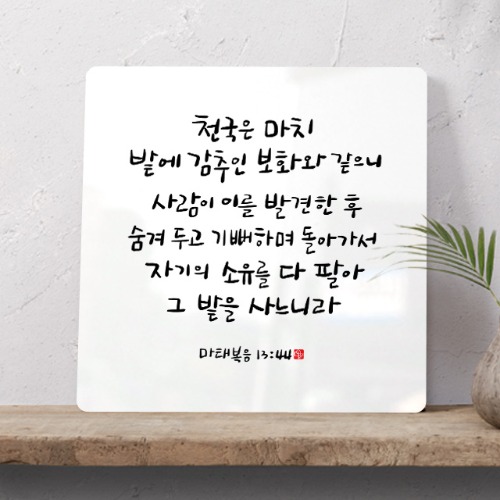 천국은 마치
밭에 감추인 보화와 같으니
사람이 이를 발견한 후
숨겨 두고 기뻐하며 돌아가서
자기의 소유를 다 팔아
그 밭을 사느니라
마태복음 13:44